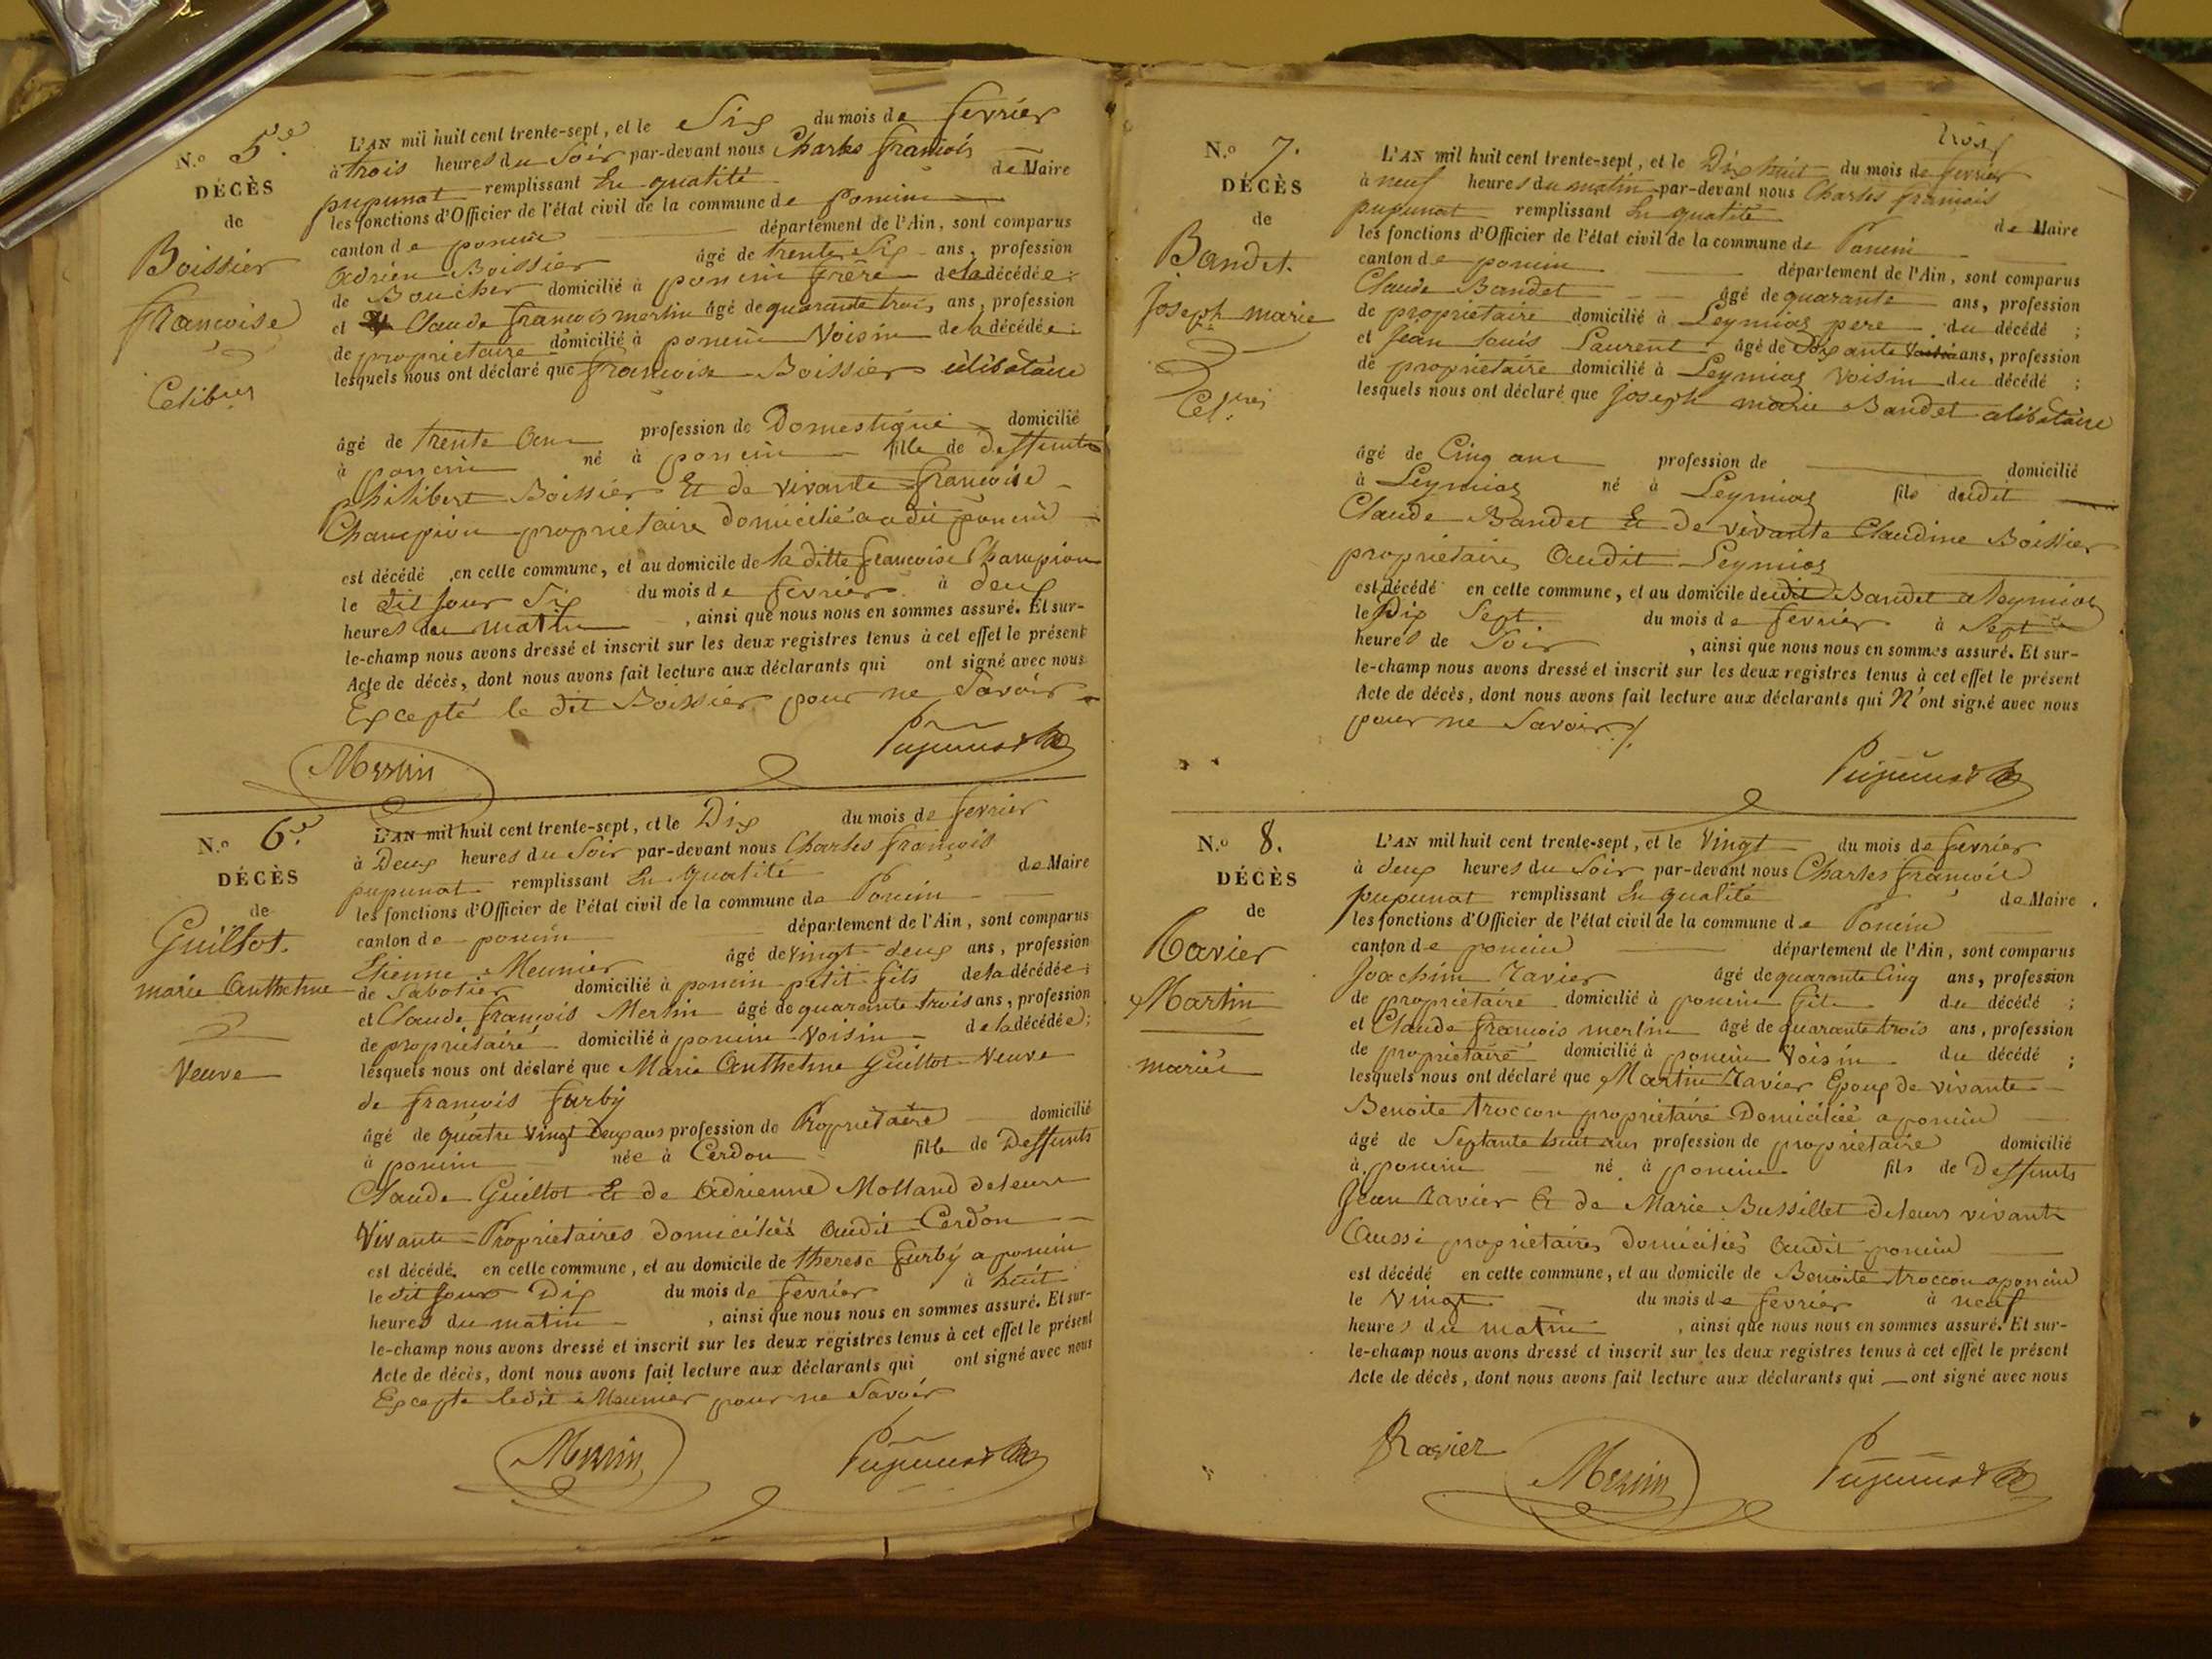 N.º 5e.
DÉCÈS
de
Boissier
francoise
Celibre
L'AN mil huit cent trente-sept, et le Six du mois de fevrier
à trois heures du Soir par-devant nous Charles francois
pupunat remplissant En qualité de Maire
les fonctions d'Officier de l'état civil de la commune de Poncin
canton de poncin département de l'Ain, sont comparus
adrien Boissier âgé de trente Six ans, profession
de Boucher domicilié à poncin frère de la décédée;
et Claude francois merlin âgé de quarante trois ans, profession
de proprietaire domicilié à poncin Voisin de la décédée;
lesquels nous ont déclaré que francoise Boissier célibataire
âgé de trente Ans profession de Domestique domicilié
à poncin né à poncin fille de deffunts
philibert Boissier Et de vivante francoise
Champion propriétaire domicilié audit poncin
est décédé en cette commune, et au domicile de la ditte francoise Champion
le dit Jour Six du mois de fevrier à deux
heures du matin, ainsi que nous nous en sommes assuré. Et sur-
le-champ nous avons dressé et inscrit sur les deux registres tenus à cet effet le présent
Acte de décès, dont nous avons fait lecture aux déclarants qui ont signé avec nous
Excepté le dit Boissier pour ne Savoir
Merlin Pupunat
N.º 6e.
DÉCÈS
de
Guillot.
marie Anthelme
Veuve
L'AN mil huit cent trente-sept, et le Dix du mois de fevrier
à Deux heures du Soir par-devant nous Charles francois
pupunat remplissant En qualité de Maire
les fonctions d'Officier de l'état civil de la commune de Poncin
canton de poncin département de l'Ain, sont comparus
Etienne Meunier âgé de vingt deux ans, profession
de Sabotier domicilié à poncin petit fils de la décédée;
et Claude francois Merlin âgé de quarante trois ans, profession
de propriétaire domicilié à poncin Voisin de la décédée;
lesquels nous ont déclaré que Marie Anthelme Guillot Veuve
de francois furby
âgé de quatre Vingt Deux ans profession de Propriétaire domicilié
à poncin née à Cerdon fille de Deffunts
Claude Guillot Et de Adrienne Molland de leurs
Vivante Propriétaires domiciliés audit Cerdon
est décédé en cette commune, et au domicile de therese furby a poncin
le dit Jour Dix du mois de fevrier à huit
heures du matin, ainsi que nous nous en sommes assuré. Et sur-
le-champ nous avons dressé et inscrit sur les deux registres tenus à cet effet le présent
Acte de décès, dont nous avons fait lecture aux déclarants qui ont signé avec nous
Excepte ledit Meunier pour ne Savoir
Merlin Pupunat
N.º 7.
DÉCÈS
de
Bandet.
Joseph marie
L'AN mil huit cent trente-sept, et le Dix huit du mois de fevrier
à neuf heures du matin par-devant nous Charles francois
pupunat remplissant En qualité de Maire
les fonctions d'Officier de l'état civil de la commune de Poncin
canton de poncin département de l'Ain, sont comparus
Claude Bandet âgé de quarante ans, profession
de propriétaire domicilié à Leymiaz pere du décédé;
et Jean Louis Laurent âgé de Soixante ans, profession
de propriétaire domicilié à Leymiaz Voisin du décédé;
lesquels nous ont déclaré que Joseph marie Bandet célibataire
âgé de Cinq ans profession de domicilié
à Leymiaz né à Leymiaz fils dudit
Claude Bandet Et de vivante Claudine Boissier
propriétaires Audit Leymiaz
est décédé en cette commune, et au domicile dudit Bandet a leymiaz
le Dix Sept du mois de fevrier à Sept
heures de Soir, ainsi que nous nous en sommes assuré. Et sur-
le-champ nous avons dressé et inscrit sur les deux registres tenus à cet effet le présent
Acte de décès, dont nous avons fait lecture aux déclarants qui N'ont signé avec nous
pour ne Savoir ./.
Pupunat
N.º 8.
DÉCÈS
de
Ravier
Martin
marié
L'AN mil huit cent trente-sept, et le Vingt du mois de fevrier
à deux heures du Soir par-devant nous Charles francois
pupunat remplissant En qualité de Maire
les fonctions d'Officier de l'état civil de la commune de Poncin
canton de poncin département de l'Ain, sont comparus
Joachim Ravier âgé de quarante Cinq ans, profession
de propriétaire domicilié à poncin fils du décédé;
et Claude francois merlin âgé de quarante trois ans, profession
de propriétaire domicilié à poncin Voisin du décédé;
lesquels nous ont déclaré que Martin Ravier Epoux de vivante
Benoite troccon propriétaire Domiciliée a poncin
âgé de Septante huit ans profession de propriétaire domicilié
à poncin né à poncin fils de Deffunts
Jean Ravier Et de Marie Bussillet de leurs vivants
Aussi propriétaires domiciliés audit poncin
est décédé en cette commune, et au domicile de Benoite troccon a poncin
le Vingt du mois de fevrier à neuf
heures du matin, ainsi que nous nous en sommes assuré. Et sur-
le-champ nous avons dressé et inscrit sur les deux registres tenus à cet effet le présent
Acte de décès, dont nous avons fait lecture aux déclarants qui ont signé avec nous
Ravier Merlin Pupunat